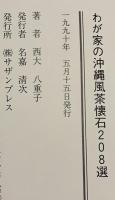 わが家の沖縄風茶懐石208選
一九九〇年 五月十五日発行
著者 西大 八重子
発行者 名嘉 清次
発行所 ㈱サザンプレス